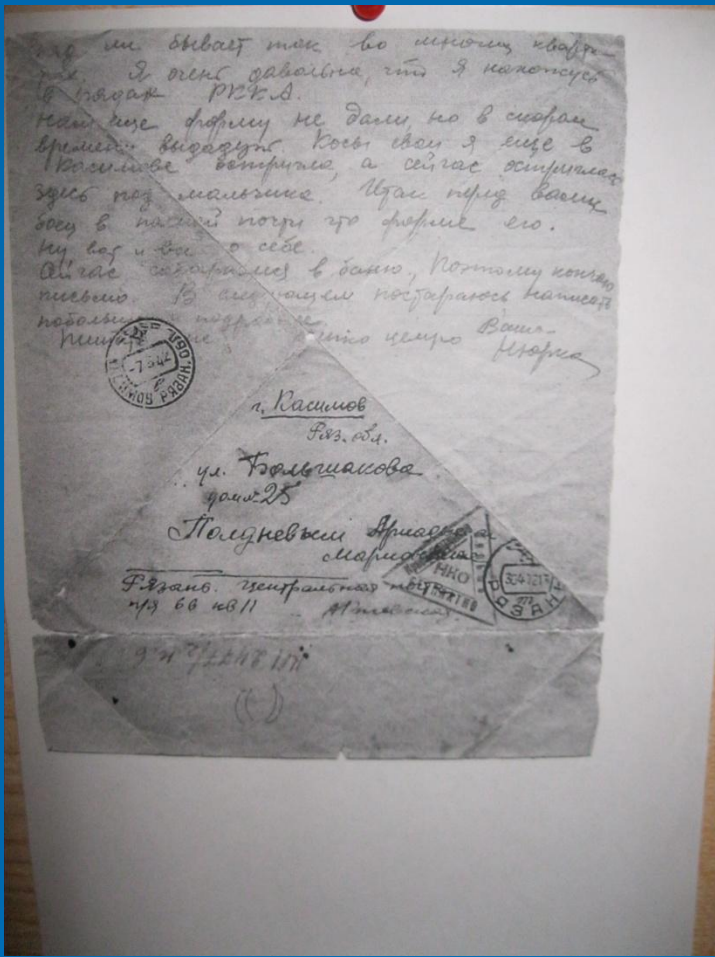 ли бывает так во многих кварти-
Я очень давольна, что я нахожусь
в рядах РККА.
Нам еще форму не дали, но в скором
времени выдадут. Косы свои я еще в
Касимове остригла, а сейчас остриглась
здесь под мальчика. Итак перед вами
боец в полной почти что форме его.
Ну вот и все о себе.
Сейчас собираемся в баню, Поэтому кончаю
письмо. В следующем постараюсь написать
побольше и подробнее.
целую Ваша
Нюрка
КАСИМОВ РЯЗАН. ОБЛ
г. Касимов
Ряз. обл.
ул. Большакова
дом № 25
Полдневым Ариадне и
Рязань. Центральная
п/я 66 кв 11
НКО
РЯЗАНЬ